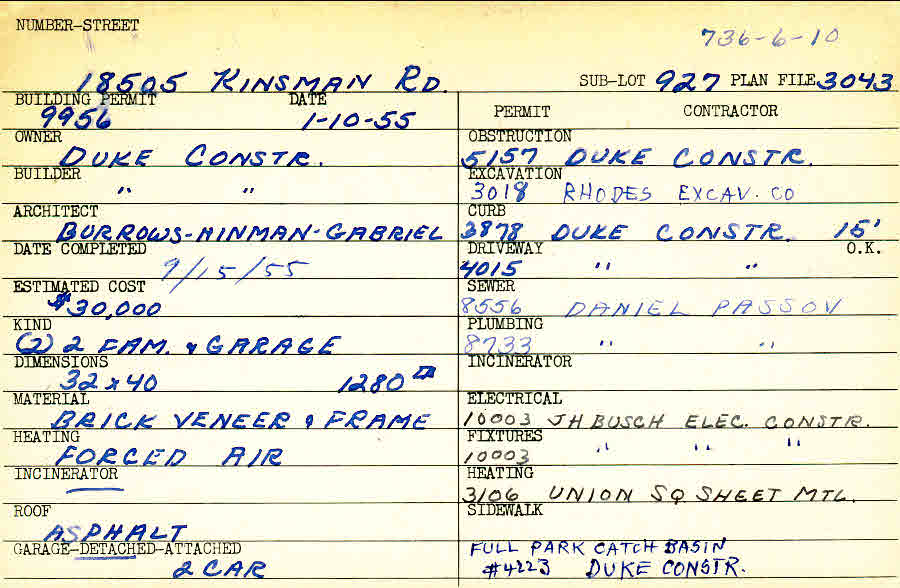 NUMBER-STREET
736-6-10
18505 KINSMAN RD.
SUB-LOT 927 PLAN FILE 3043
BUILDING PERMIT DATE
9956 1-10-55
PERMIT CONTRACTOR
OWNER
DUKE CONSTR.
BUILDER
" "
ARCHITECT
BURROWS-HINMAN-GABRIEL
DATE COMPLETED
9/15/55
ESTIMATED COST
$30,000
KIND
(2) 2 FAM. & GARAGE
DIMENSIONS
32 x 40 1280
MATERIAL
BRICK VENEER & FRAME
HEATING
FORCED AIR
INCINERATOR
ROOF
ASPHALT
GARAGE-DETACHED-ATTACHED
2 CAR
OBSTRUCTION
5157 DUKE CONSTR.
EXCAVATION
3018 RHODES EXCAV. CO
CURB
3878 DUKE CONSTR. 15'
DRIVEWAY O.K.
4015 " "
SEWER
8556 DANIEL PASSOV
PLUMBING
8733 " "
INCINERATOR
ELECTRICAL
10003 JH BUSCH ELEC. CONSTR.
FIXTURES
10003 " " "
HEATING
3106 UNION SQ SHEET MTL.
SIDEWALK
FULL PARK CATCH BASIN
#4223 DUKE CONSTR.